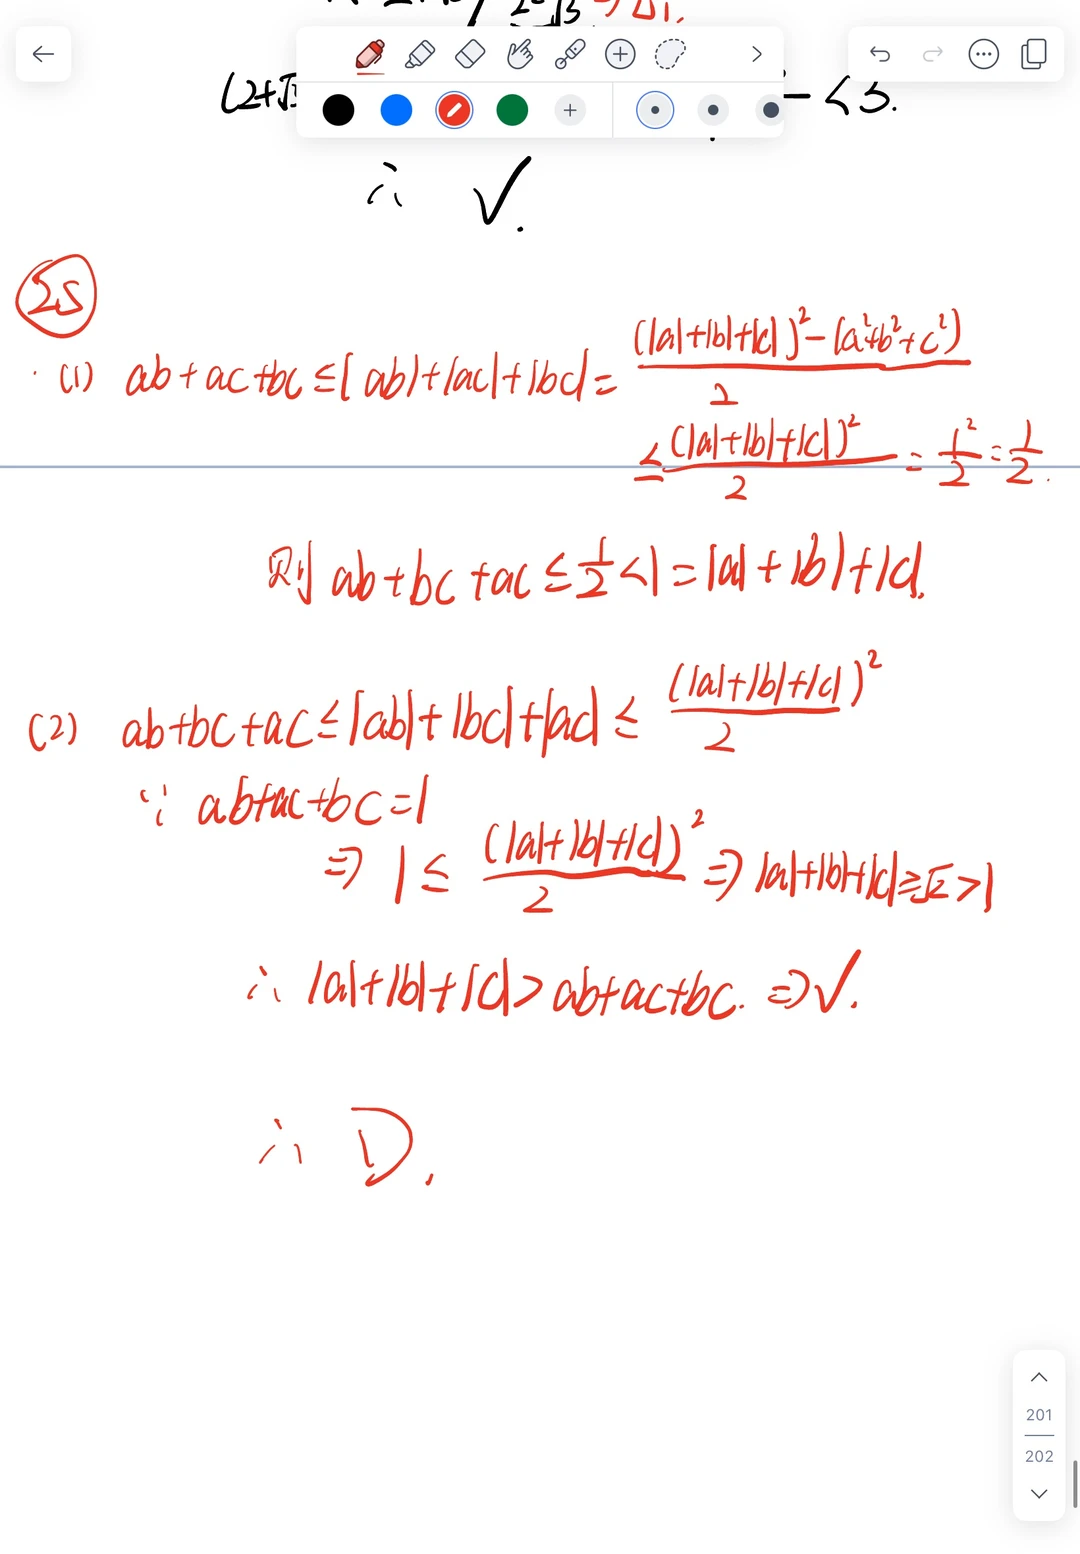 (2+√3
- < 3.
∴ √.
25
(1) ab+ac+bc≤|ab|+|ac|+|bc|= (|a|+|b|+|c|)²-(a²+b²+c²) / 2
≤ (|a|+|b|+|c|)² / 2 = 1² / 2 = 1/2.
则 ab+bc+ac ≤ 1/2 <1=|a|+|b|+|c|.
(2) ab+bc+ac≤|ab|+|bc|+|ac| ≤ (|a|+|b|+|c|)² / 2
∵ ab+ac+bc=1
⇒ 1 ≤ (|a|+|b|+|c|)² / 2 ⇒ |a|+|b|+|c|≥√2>1
∴ |a|+|b|+|c|> ab+ac+bc. ⇒√.
∴ D.
201
202